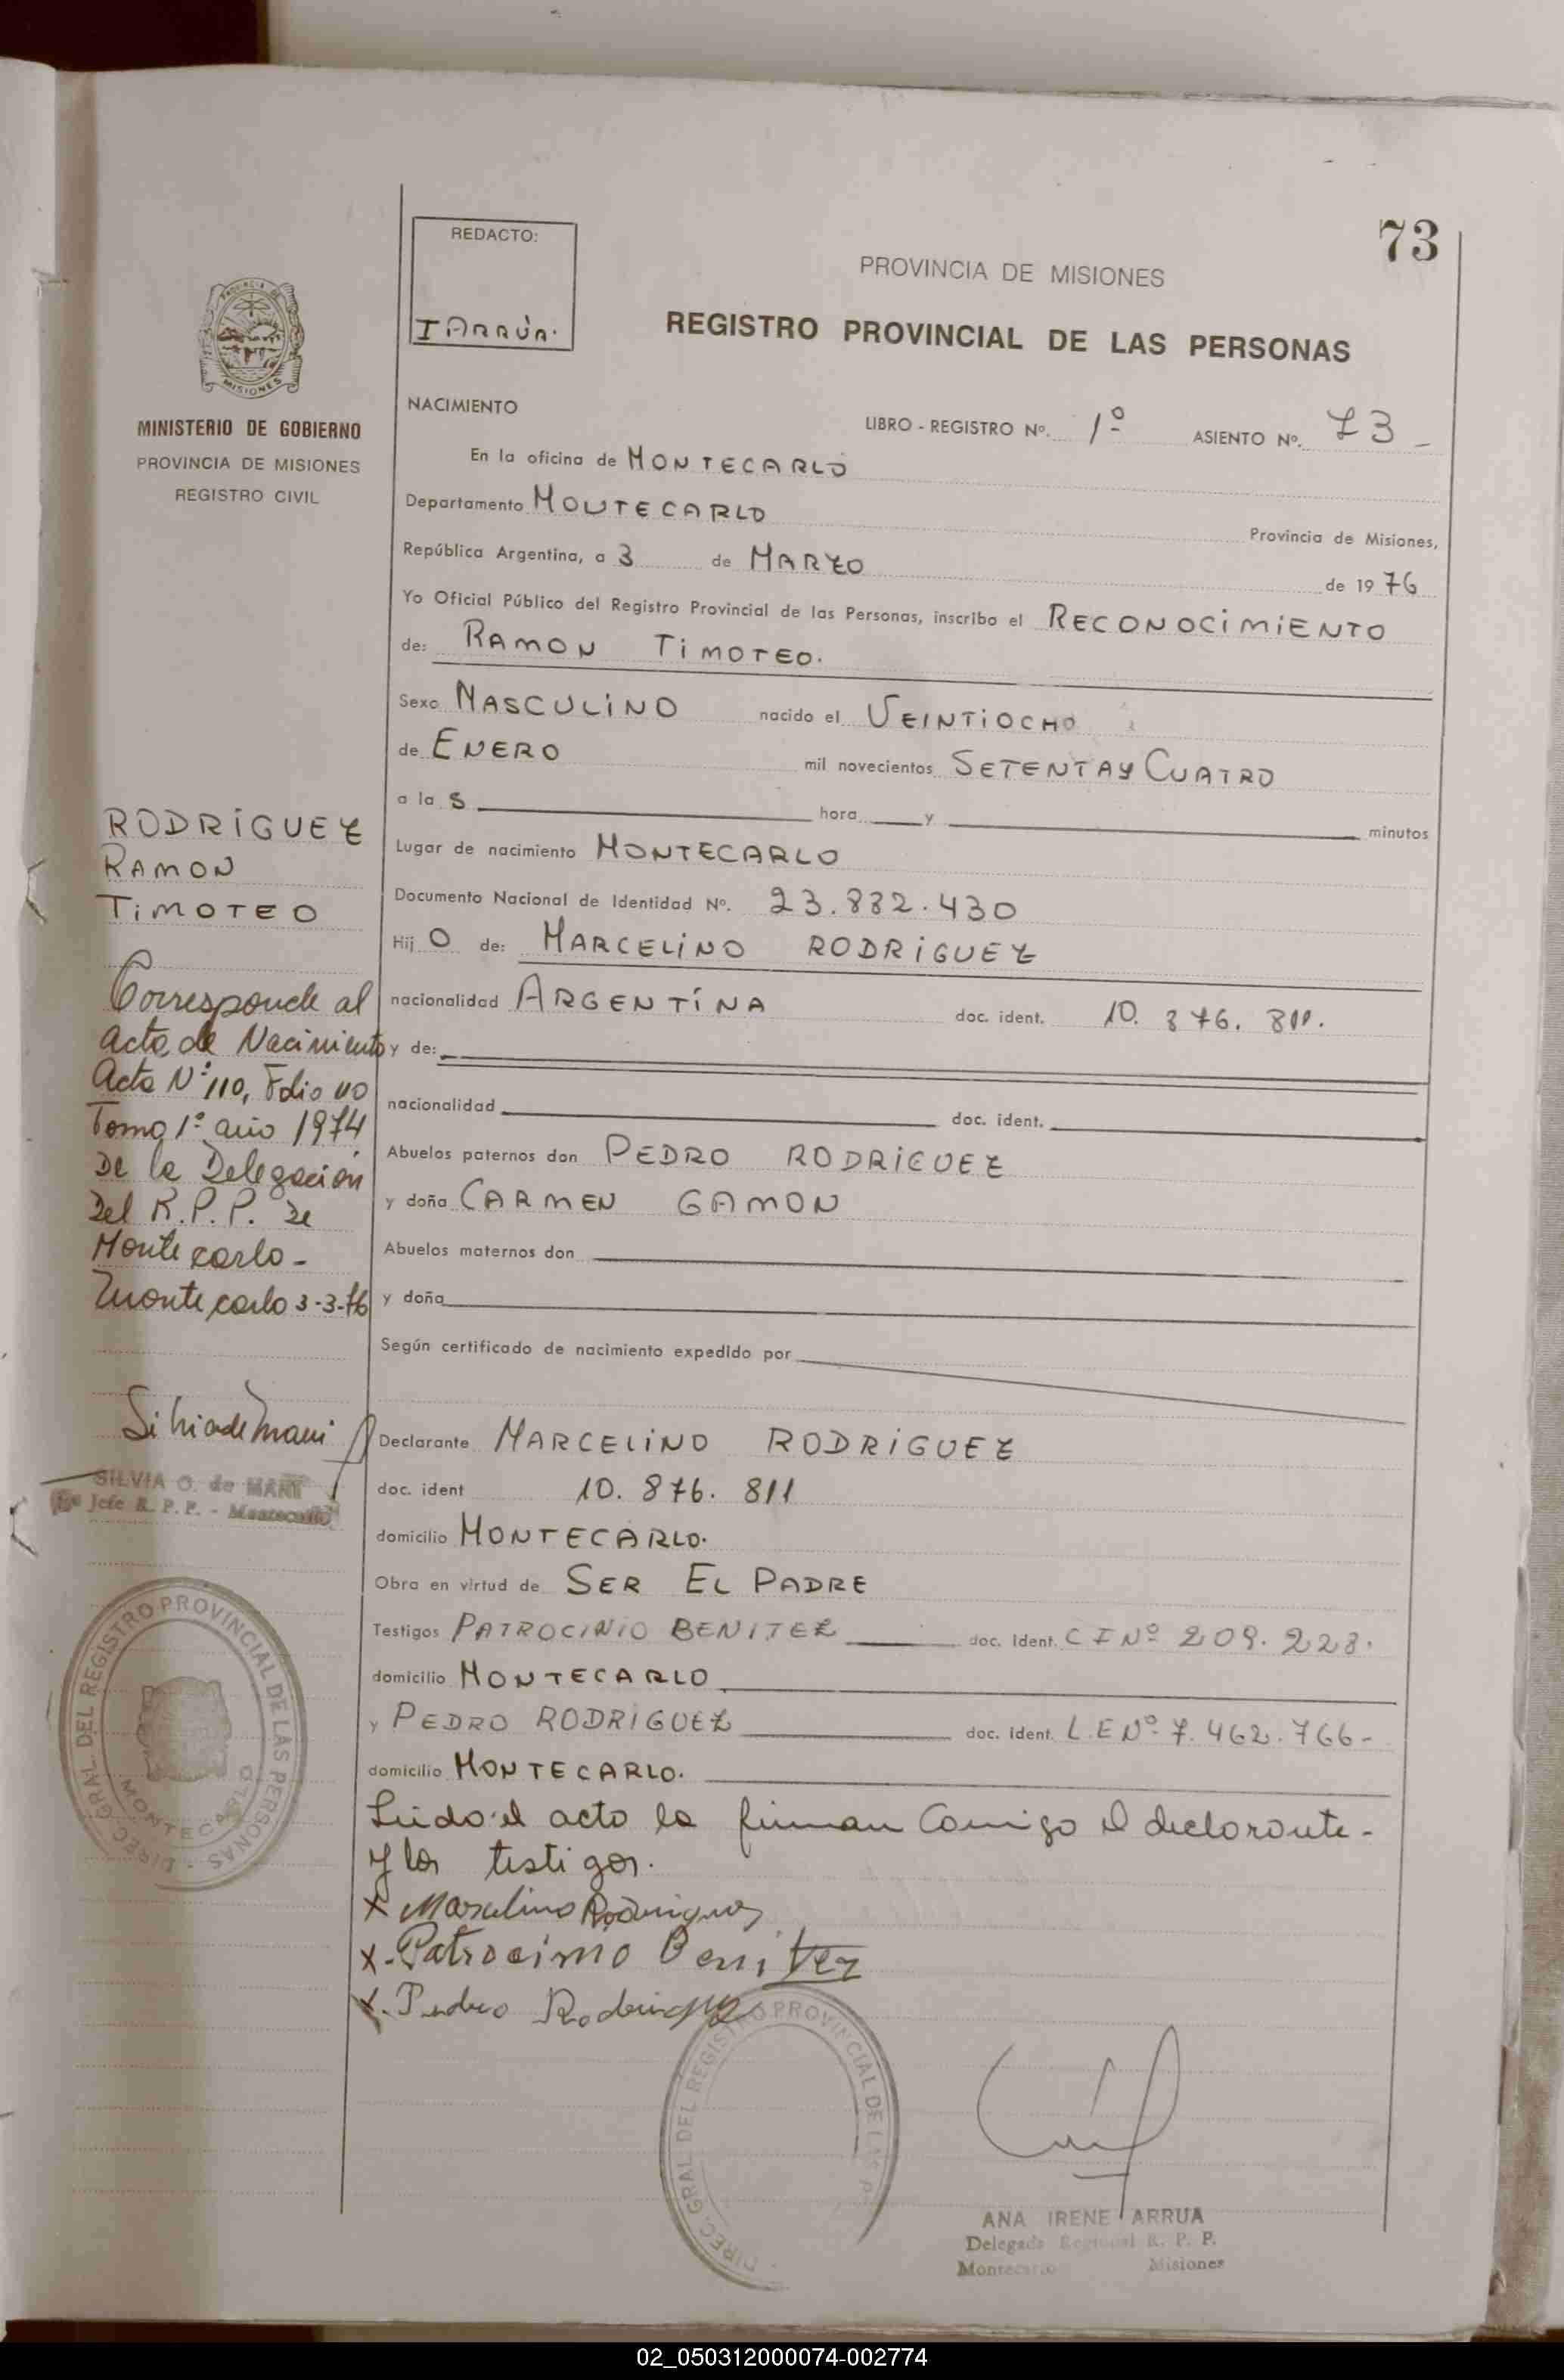 73
REDACTO:
I ARRÚA.
PROVINCIA DE MISIONES
REGISTRO PROVINCIAL DE LAS PERSONAS
PROVINCIA DE
MISIONES
MINISTERIO DE GOBIERNO
PROVINCIA DE MISIONES
REGISTRO CIVIL
NACIMIENTO
LIBRO - REGISTRO Nº. 1º ASIENTO Nº. 73 -
En la oficina de MONTECARLO
Departamento MONTECARLO Provincia de Misiones,
República Argentina, a 3 de MARZO de 1976
Yo Oficial Público del Registro Provincial de las Personas, inscribo el RECONOCIMIENTO
de: RAMON TIMOTEO.
Sexo MASCULINO nacido el VEINTIOCHO
de ENERO mil novecientos SETENTA Y CUATRO
a la S hora y minutos
Lugar de nacimiento MONTECARLO
Documento Nacional de Identidad Nº. 23.832.430
Hij O de: MARCELINO RODRIGUEZ
nacionalidad ARGENTÍNA doc. ident. 10. 876. 811.
y de:
nacionalidad doc. ident.
Abuelos paternos don PEDRO RODRIGUEZ
y doña CARMEN GAMON
Abuelos maternos don
y doña
Según certificado de nacimiento expedido por
Declarante MARCELINO RODRIGUEZ
doc. ident 10. 876. 811
domicilio MONTECARLO.
Obra en virtud de SER EL PADRE
Testigos PATROCINIO BENITEZ doc. ident. C I Nº 209. 228.
domicilio MONTECARLO
y PEDRO RODRIGUEZ doc. ident. L.E Nº 7. 462. 766-
domicilio MONTECARLO.
Leido el acto la firman Comigo el declarante -
y los testigos.
x Marcelino Rodriguez
x. Patrocimo Benitez
x. Pedro Rodriguez
RODRIGUEZ
RAMON
TIMOTEO
Corresponde al
acta de Nacimiento
Acta Nº 110, Folio 110
Tomo 1º año 1974
De la Delegación
Del R.P.P. de
Montecarlo -
Montecarlo 3-3-76
Silvia de Mani
SILVIA O. de MANI
Jefe R. P. P. - Montecarlo
DIREC. GRAL. DEL REGISTRO PROVINCIAL DE LAS PERSONAS
MONTECARLO
DIREC. GRAL. DEL REGISTRO PROVINCIAL DE LAS P
ANA IRENE ARRUA
Delegada Regional R. P. P.
Montecarlo Misiones
02_050312000074-002774